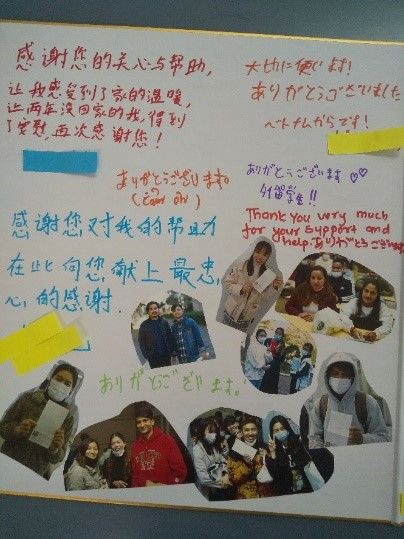 感谢您的关心与帮助,
让我感受到了家的温暖,
让两年没回家的我,得到
了安慰,再次感谢您!
大切に使います!
ありがとうございました
ベトナムからです!
ありがとうございます。
ありがとうございます
留学生!!
感谢您对我的帮助
在此向您献上最忠
心的感谢.
Thank you very much
for your support and
help. ありがとうございます
ありがとうございます。